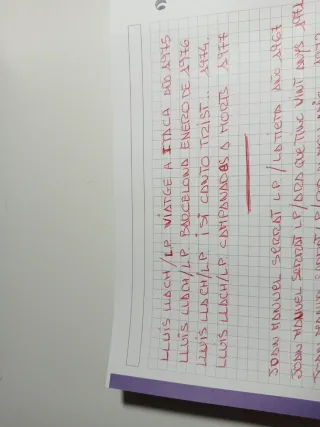 LLUIS LLACH/LP VIATGE A ITACA AÑO 1975
LLUIS LLACH/LP BARCELONA ENERO DE 1976
LLUIS LLACH/LP I SI CANTO TRIST... 1974
LLUIS LLACH/LP CAMPANADES A MORTS 1977
JOAN MANUEL SERRAT LP/LA TIETA AÑO 1967
JOAN MANUEL SERRAT LP/ARA QUE TINC VINT ANYS
JOAN MANUEL SERRAT LP/